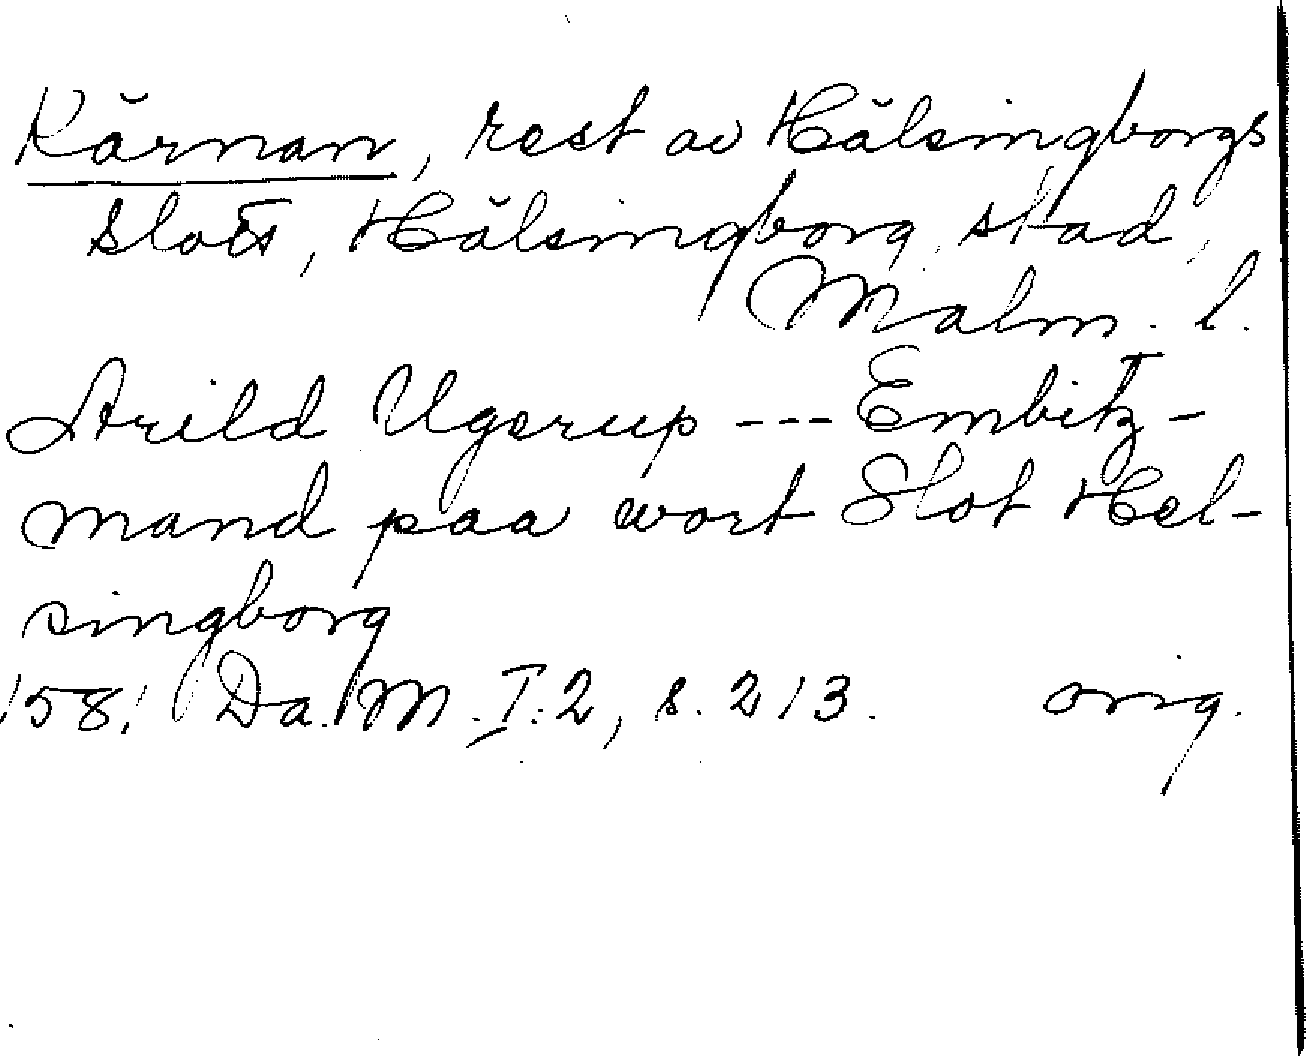 Kärnan, rest av Hälsingborgs
slott, Hälsingborg stad,
Malm. l.
Arild Ugerup --- Embitz-
mand paa wort Slot Hel-
singborg
1581 Da. M. I:2, s. 213. orig.